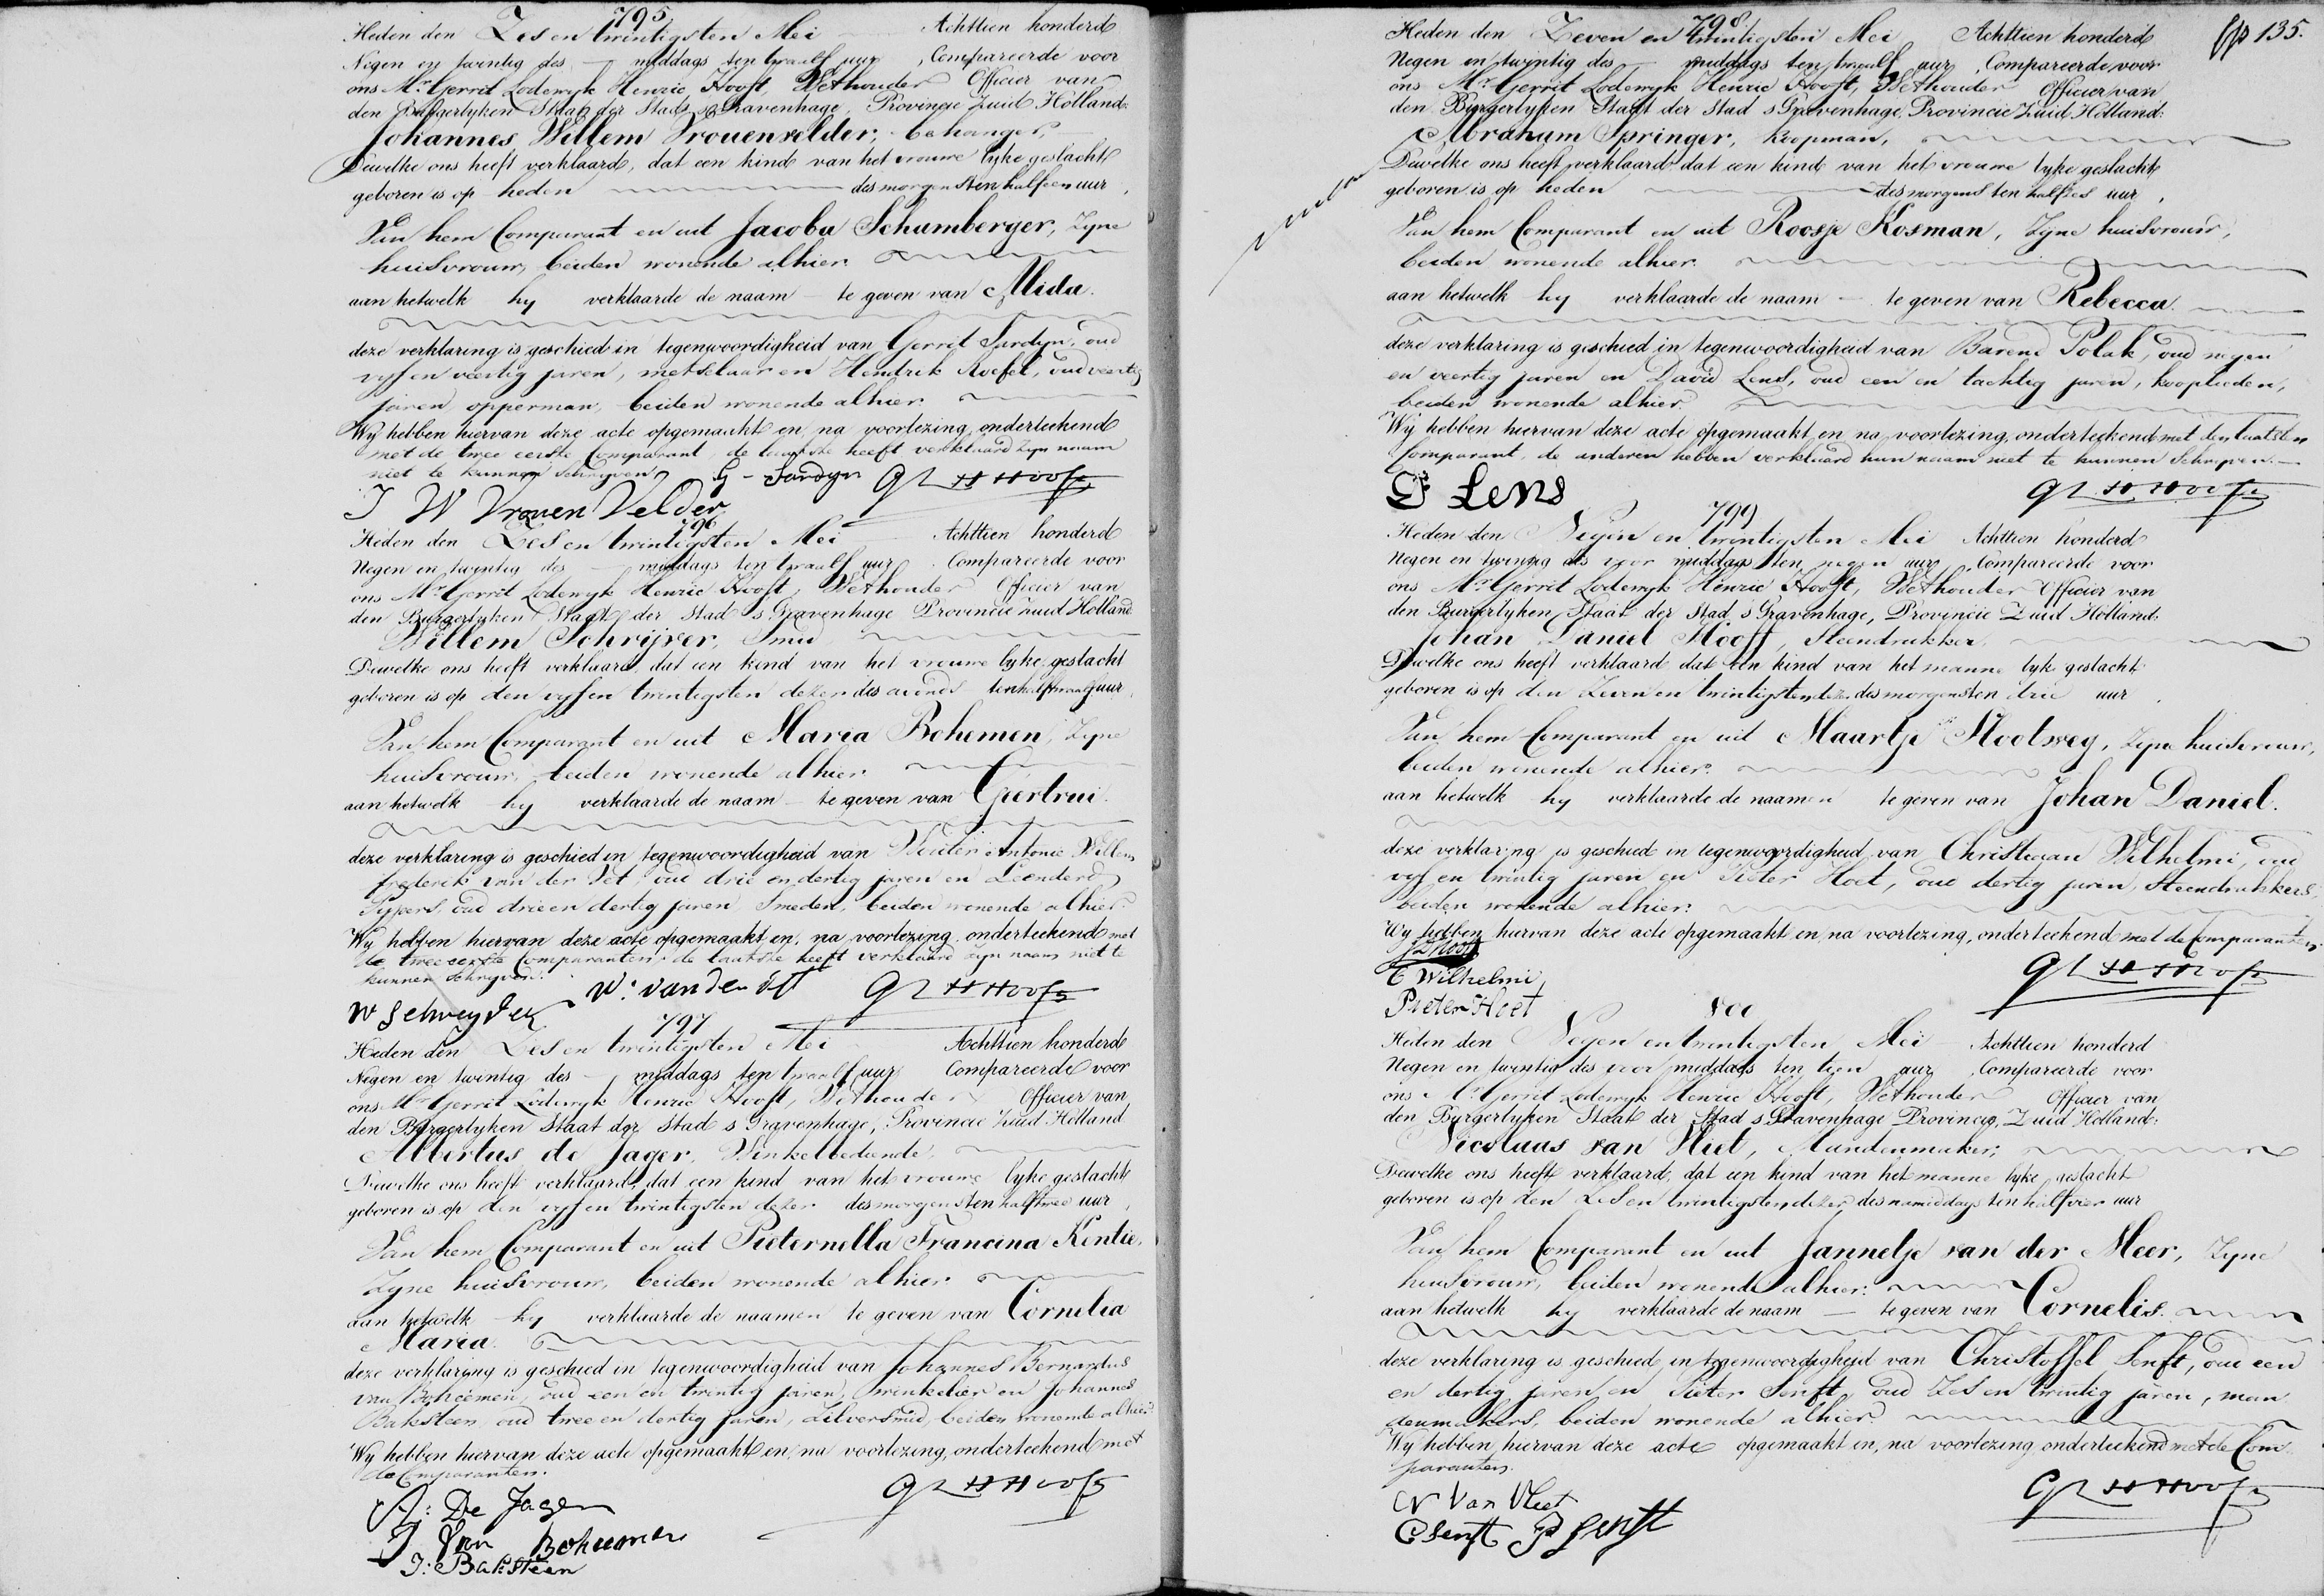 795
Heden den Zes en twintigsten Mei Achttien honderd
Negen en twintig des — middags ten twaalf uur, Compareerde voor
ons Mr. Gerrit Lodewyk Henrie Hooft, Wethouder Officier van
den Burgerlyken Staat der Stads s Gravenhage, Provincie Zuid Holland:
Johannes Willem Vrouenvelder, behanger,
Dewelke ons heeft verklaard, dat een kind van het vrouwe lyke geslacht
geboren is op heden des morgens ten half een uur,
Van hem Comparant en uit Jacoba Schumberger, Zyne
huisvrouw, beiden wonende alhier.
aan hetwelk hy verklaarde de naam — te geven van Alida.
deze verklaring is geschied in tegenwoordigheid van Gerrit Sardyn, oud
vyf en veertig jaren, metselaar en Hendrik Roefel, oud veertig
jaren, opperman, beiden wonende alhier.
Wy hebben hiervan deze acte opgemaakt en na voorlezing, onderteekend
met de twee eerste Comparant, de laatste heeft verklaard zyn naam
niet te kunnen Schryven. G - Sardyn GLHHooft
J W Vrouen Velder
796
Heden den Zes en twintigsten Mei Achttien honderd
Negen en twintig des — middags ten twaalf uur Compareerde voor
ons Mr. Gerrit Lodewyk Henrie Hooft, Wethouder Officier van
den Burgerlyken Staat der Stad s Gravenhage Provincie Zuid Holland
Willem Schrijver, Smid
Dewelke ons heeft verklaard, dat een kind van het vrouwe lyke geslacht
geboren is op den vyf en twintigsten dezer des avonds ten half twaalf uur,
Van hem Comparant en uit Maria Bohemen, Zyne
huisvrouw, beiden wonende alhier.
aan hetwelk hy verklaarde de naam — te geven van Geertrui.
deze verklaring is geschied in tegenwoordigheid van Wouter Antonie Willem
frederik van der Pst, oud drie en dertig jaren en Leendert
Sypers, oud drie en dertig jaren Smeden, beiden wonende alhier.
Wy hebben hiervan deze acte opgemaakt en, na voorlezing, onderteekend met
de twee eerste Comparanten, de laatste heeft verklaard zyn naam niet te
kunnen schryven.
W Schreyder W: van der GLHHooft
797
Heden den Zes en twintigsten Mei Achttien honderd
Negen en twintig des — middags ten twaalf uur Compareerde voor
ons Mr Gerrit Lodewyk Henrie Hooft, Wethouder Officier van
den Burgerlyken Staat der Stad s Gravenhage, Provincie Zuid Holland
Albertus de Jager, Winkelbediende,
Dewelke ons heeft verklaard, dat een kind van het vrouwe lyke geslacht
geboren is op den vyf en twintigsten dezer des morgens ten half twee uur,
Van hem Comparant en uit Pieternella Francina Kentie,
Zyne huisvrouw, beiden wonende alhier
aan hetwelk hy verklaarde de naamen te geven van Cornelia
Maria.
deze verklaring is geschied in tegenwoordigheid van Johannes Bernardus
van Boheemen, oud een en twintig jaren, winkelier en Johannes
Baksteen, oud twee en dertig jaren, Zilversmid, beiden wonende alhier.
Wy hebben hiervan deze acte opgemaakt en, na voorlezing, onderteekend met
de Comparanten.
A: De Jager GLHHooft
J Van Boheemen
J: Baksteen
fo 135.
798
Heden den Zeven en twintigsten Mei Achttien honderd
Negen en twyntig des — middags ten twaalf uur, Compareerde voor
ons Mr Gerrit Lodewyk Henrie Hooft, Wethouder Officier van
den Burgerlyken Staat der Stad s Gravenhage, Provincie Zuid Holland:
Abraham Springer, Koopman,
Dewelke ons heeft verklaard dat een kind van het vrouwe lyke geslacht
geboren is op heden des morgens ten half zes uur,
Van hem Comparant en uit Roosje Kosman, Zyne huisvrouw,
beiden wonende alhier.
aan hetwelk hy verklaarde de naam — te geven van Rebecca.
deze verklaring is geschied in tegenwoordigheid van Barend Polak, oud negen
en veertig jaren en David Lens, oud een en tachtig jaren, kooplieden,
beiden wonende alhier.
Wij hebben hiervan deze acte opgemaakt en na voorlezing, onderteekend met den laatsten
Comparant, de anderen hebben verklaard hun naam niet te kunnen Schryven.
Lens GLHHooft
799
Heden den Negen en twintigsten Mei Achttien honderd
Negen en twintig des voor middags ten negen uur, Compareerde voor
ons Mr. Gerrit Lodewyk Henrie Hooft, Wethouder Officier van
den Burgerlyken Staat der Stad s Gravenhage, Provincie Zuid Holland:
Johan Daniel Hooft, Steendrukker
Dewelke ons heeft verklaard dat een kind van het manne lyk geslacht
geboren is op den Zeven en twintigsten dezer des morgens ten drie uur,
Van hem Comparant en uit Maartje Slootweg, Zyne huisvrouw,
beiden wonende alhier.
aan hetwelk hy verklaarde de naamen te geven van Johan Daniel.
deze verklaring is geschied in tegenwoordigheid van Christiaan Wilhelmi, oud
vyf en twintig jaren en Pieter Hoet, oud dertig jaren, Steendrukkers
beiden wonende alhier.
Wy hebben hiervan deze acte opgemaakt en, na voorlezing, onderteekend met de Comparanten,
C Wilhelmi GLHHooft
Pieter Hoet
800
Heden den Negen en twintigsten Mei Achttien honderd
Negen en twintig des voor middags ten tien uur, Compareerde voor
ons Mr Gerrit Lodewyk Henrie Hooft, Wethouder Officier van
den Burgerlyken Staat der Stad s Gravenhage Provincie, Zuid Holland:
Nicolaas van Vliet, Mandenmaker,
Dewelke ons heeft verklaard, dat een kind van het manne lyke geslacht
geboren is op den Zes en twintigsten dezer des namiddags ten half vier uur
Van hem Comparant en uit Jannetje van der Meer, Zyne
huisvrouw, beiden wonende alhier.
aan hetwelk hy verklaarde de naam — te geven van Cornelis.
deze verklaring is geschied in tegenwoordigheid van Christoffel Senft, oud een
en dertig jaren en Pieter Senft, oud Zes en twintig jaren, man
denmakers, beiden wonende alhier.
Wy hebben hiervan deze acte opgemaakt en, na voorlezing onderteekend met de Com
paranten.
N Van Vliet GLHHooft
C Senft P Senft